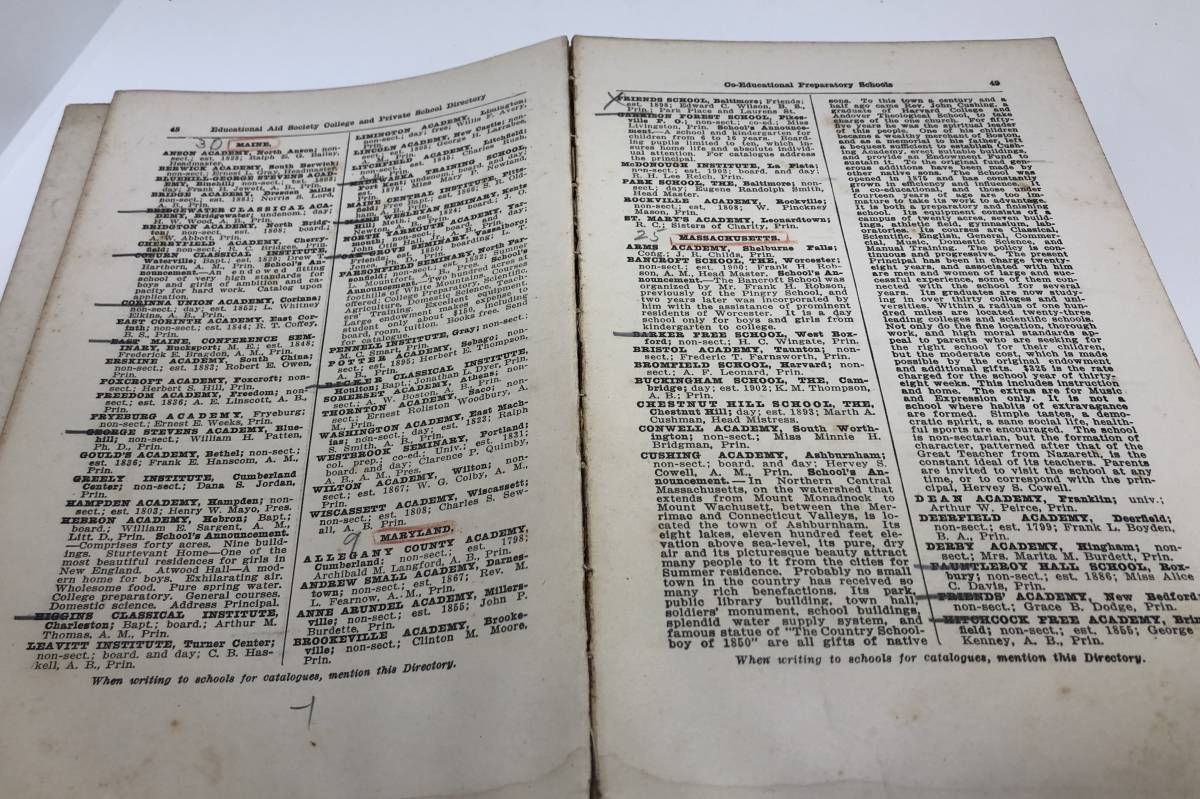 48 Educational Aid Society College and Private School Directory
30 MAINE.
ANSON ACADEMY, North Anson; non-
sect.; est. 1823;
BERWICK ACADEMY, South Berwick;
BLUEHILL-GEORGE STEVENS ACAD-
EMY, Bluehill; non-sect.;
BRIDGE ACADEMY,
sect.; est. 1881; Norris
A. B., Prin.
BRIDGEWATER CLASSICAL ACA-
DEMY, Bridgewater; undenom.; day;
BRIDGTON ACADEMY, North Bridg-
CHERRYFIELD ACADEMY, Cherry-
field; R. C. Bridges, Prin.
COBURN CLASSICAL INSTITUTE,
Waterville; Bapt.; est. 1829; Drew T.
Harthorn, A. M., Prin. School's An-
nouncement.—An endowed fitting
school of very high standards for
boys and girls of ambition and ca-
pacity for hard work. Catalog upon
application.
CORINNA UNION ACADEMY, Corinna;
non-sect.; day; est. 1852; L. Whitney
Elkins, A. B., Prin.
EAST CORINTH ACADEMY, East Cor-
inth; non-sect.; est. 1844; R. T. Coffey,
B. S., Prin.
EAST MAINE, CONFERENCE SEM-
INARY, Bucksport; M. E.; est. 1848;
Frederick E. Bragdon, A. M., Prin.
ERSKINE ACADEMY, South China;
non-sect.; est. 1883; Robert E. Owen,
Prin.
FOXCROFT ACADEMY, Foxcroft; non-
sect.; Herbert S. Hill, Prin.
FREEDOM ACADEMY, Freedom; non-
sect.; est. 1836; A. B. Linscott, A. B.,
Prin.
FRYEBURG ACADEMY, Fryeburg;
non-sect.; Ernest E. Weeks, Prin.
GEORGE STEVENS ACADEMY, Blue-
hill; non-sect.; William H. Patten,
Ph. D., Prin.
GOULD'S ACADEMY, Bethel; non-sect.;
est. 1836; Frank E. Hanscom, A. M.,
Prin.
GREELY INSTITUTE, Cumberland
Center; non-sect.; Dana S. Jordan,
Prin.
HAMPDEN ACADEMY, Hampden; non-
sect.; est. 1803; Henry W. Mayo, Pres.
HEBRON ACADEMY, Hebron; Bapt.;
board.; William E. Sargent, A. M.,
Litt. D., Prin. School's Announcement.
—Comprises forty acres. Nine build-
ings. Sturtevant Home—One of the
most beautiful residences for girls in
New England. Atwood Hall—A mod-
ern home for boys. Exhilarating air.
Wholesome food. Pure spring water.
College preparatory. General courses.
Domestic science. Address Principal.
HIGGINS CLASSICAL INSTITUTE,
Charleston; Bapt.; board.; Arthur M.
Thomas, A. M., Prin.
LEAVITT INSTITUTE, Turner Center;
non-sect.; board. and day; C. B. Has-
kell, A. B., Prin.
LIMINGTON ACADEMY, Limington;
LINCOLN ACADEMY, New Castle; non-
LITCHFIELD ACADEMY, Litchfield;
MADAWASKA TRAINING SCHOOL,
Fort Kent;
MAINE CENTRAL INSTITUTE, Pitts-
MAINE WESLEYAN SEMINARY, Kents
Hill;
NORTH YARMOUTH ACADEMY, Yar-
OAK GROVE SEMINARY, Vassalboro;
PARSONSFIELD SEMINARY, North Par-
PENNELL INSTITUTE, Gray; non-sect.;
M. C. Smart, Prin.
POTTER ACADEMY, Sebago;
Herbert E. Thompson,
A. B., Prin.
RICKER CLASSICAL INSTITUTE,
Houlton; Bapt.; Jonathan L. Dyer, Prin.
SOMERSET ACADEMY, Athens; non-
sect.; A. W. Boston, A. B., Prin.
THORNTON ACADEMY, Saco;
Ernest Roliston Woodbury, A.
M., Prin.
WASHINGTON ACADEMY, East Mach-
ias; non-sect.; day; est. 1823; Ralph
S. Smith, A. B., Prin.
WESTBROOK SEMINARY, Portland;
col. prep.; co-ed.; Univ.; est. 1831;
board. and day; Clarence P. Quimby,
A. B., A. M., Pres.
WILTON ACADEMY, Wilton; non-
sect.; est. 1867; W. G. Colby, A. M.,
Prin.
WISCASSETT ACADEMY, Wiscassett;
non-sect.; est. 1808; Charles S. Sew-
all, A. B., Prin.
9 MARYLAND.
ALLEGANY COUNTY ACADEMY,
Cumberland; non-sect.; est. 1798;
Archibald M. Langford, A. B., Prin.
ANDREW SMALL ACADEMY, Darnes-
town; non-sect.; est. 1867; Rev. M.
L. Fearnow, A., M., Prin.
ANNE ARUNDEL ACADEMY, Millers-
ville; non-sect.; est. 1855; John P.
Burdette, Prin.
BROOKEVILLE ACADEMY, Brooke-
ville; non-sect.; Clinton M. Moore,
Prin.
When writing to schools for catalogues, mention this Directory.
Co-Educational Preparatory Schools 49
FRIENDS SCHOOL, Baltimore; Friends;
est. 1898; Edward C. Wilson, B. S.,
Prin.; Park Place and Laurens St.
GARRISON FOREST SCHOOL, Pikes-
ville P. O.; non-sect.; co-ed.; Miss
Livingston, Prin. School's Announce-
ment.—A school and kindergarten for
children from 6 to 16 years. Board-
ing pupils limited to ten, which in-
sures home life and absolute individ-
ual attention. For catalogue address
the principal.
McDONOUGH INSTITUTE, La Plata;
non-sect.; est. 1903; board. and day;
R. H. Lee Reich, Prin.
PARK SCHOOL, THE, Baltimore; non-
sect.; day; Eugene Randolph Smith,
Head Master.
ROCKVILLE ACADEMY, Rockville;
non-sect.; est. 1808; W. Pinckney
Mason, Prin.
ST. MARY'S ACADEMY, Leonardtown;
R. C.; Sisters of Charity, Prin.
MASSACHUSETTS.
ARMS ACADEMY, Shelburne Falls;
Cong.; J. R. Childs, Prin.
BANCROFT SCHOOL, THE, Worcester;
non-sect.; est. 1900; Frank H. Rob-
son, A. M., Head Master. School's An-
nouncement.—The Bancroft School was
organized by Mr. Frank H. Robson,
previously of the Pingry School, and
two years later was incorporated by
him with the assistance of prominent
residents of Worcester. It is a day
school only for boys and girls from
kindergarten to college.
BARKER FREE SCHOOL, West Box-
ford; non-sect.; H. C. Wingate, Prin.
BRISTOL ACADEMY, Taunton; non-
sect.; Frederic T. Farnsworth, Prin.
BROMFIELD SCHOOL, Harvard; non-
sect.; A. F. Leonard, Prin.
BUCKINGHAM SCHOOL, THE, Cam-
bridge; day; est. 1902; K. M. Thompson,
A. B.; Prin.
CHESTNUT HILL SCHOOL, THE,
Chestnut Hill; day; est. 1893; Marth A.
Cushman, Head Mistress.
CONWELL ACADEMY, South Worth-
ington; non-sect.; Miss Minnie H.
Bridgman, Prin.
CUSHING ACADEMY, Ashburnham;
non-sect.; board. and day; Hervey S.
Cowell, A. M., Prin. School's An-
nouncement.—In Northern Central
Massachusetts, on the watershed that
extends from Mount Monadnock to
Mount Wachusett, between the Mer-
rimac and Connecticut Valleys, is lo-
cated the town of Ashburnham. Its
eight lakes, eleven hundred feet ele-
vation above sea-level, its pure, dry
air and its picturesque beauty attract
many people to it from the cities for
Summer residence. Probably no small
town in the country has received so
many rich benefactions. Its park,
public library building, town hall,
soldiers' monument, school buildings,
splendid water supply system, and
famous statue of "The Country School-
boy of 1850" are all gifts of native
sons. To this town a century and a
half ago came Rev. John Cushing, a
graduate of Harvard College and
Andover Theological School, to take
charge of the one church. For fifty-
five years he was the spiritual leader
of this people. One of his children
became a wealthy merchant of Boston,
and as a memorial to his father left
a bequest sufficient to establish Cush-
ing Academy, erect suitable buildings,
and provide an Endowment Fund to
sustain it. To the original fund gen-
erous additions have been made by
other native sons. The School was
opened in 1875 and has constantly
grown in efficiency and influence. It
is co-educational, and those under
thirteen years of age are too im-
mature to take its work to advantage.
It is both a preparatory and finishing
school. Its equipment consists of a
campus of twenty acres, seven build-
ings, athletic field, gymnasium, lab-
oratories. Its courses are Classical,
Scientific, English, General, Commer-
cial, Music, Domestic Science, and
Manual Training. The policy is con-
tinuous and progressive. The present
Principal has been in charge twenty-
eight years, and associated with him
are men and women of large and suc-
cessful experience, some of them con-
nected with the school for several
years. Its graduates are now study-
ing in over thirty colleges and uni-
versities. Within a radius of one hun-
dred miles are located twenty-three
leading colleges and scientific schools.
Not only do the fine location, thorough
work, and high moral standards ap-
peal to parents who are seeking for
the right school for their children,
but the moderate cost, which is made
possible by the original endowment
and additional gifts. $325 is the rate
charged for the school year of thirty-
eight weeks. This includes instruction
and home. The extras are for Music
and Expression only. It is not a
school where habits of extravagance
are formed. Simple tastes, a demo-
cratic spirit, a sane social life, health-
ful sports are encouraged. The school
is non-sectarian, but the formation of
character, patterned after that of the
Great Teacher from Nazareth, is the
constant ideal of its teachers. Parents
are invited to visit the school at any
time, or to correspond with the prin-
cipal, Hervey S. Cowell.
DEAN ACADEMY, Franklin; univ.;
Arthur W. Peirce, Prin.
DEERFIELD ACADEMY, Deerfield;
non-sect.; est. 1799; Frank L. Boyden,
B. A., Prin.
DERBY ACADEMY, Hingham; non-
sect.; Mrs. Marita M. Burdett, Prin.
FAUNTLEROY HALL SCHOOL, Rox-
bury; non-sect.; est. 1886; Miss Alice
C. Davis, Prin.
FRIENDS' ACADEMY, New Bedford;
non-sect.; Grace B. Dodge, Prin.
HITCHCOCK FREE ACADEMY, Brim-
field; non-sect.; est. 1855; George
Kenney, A. B., Prin.
When writing to schools for catalogues, mention this Directory.